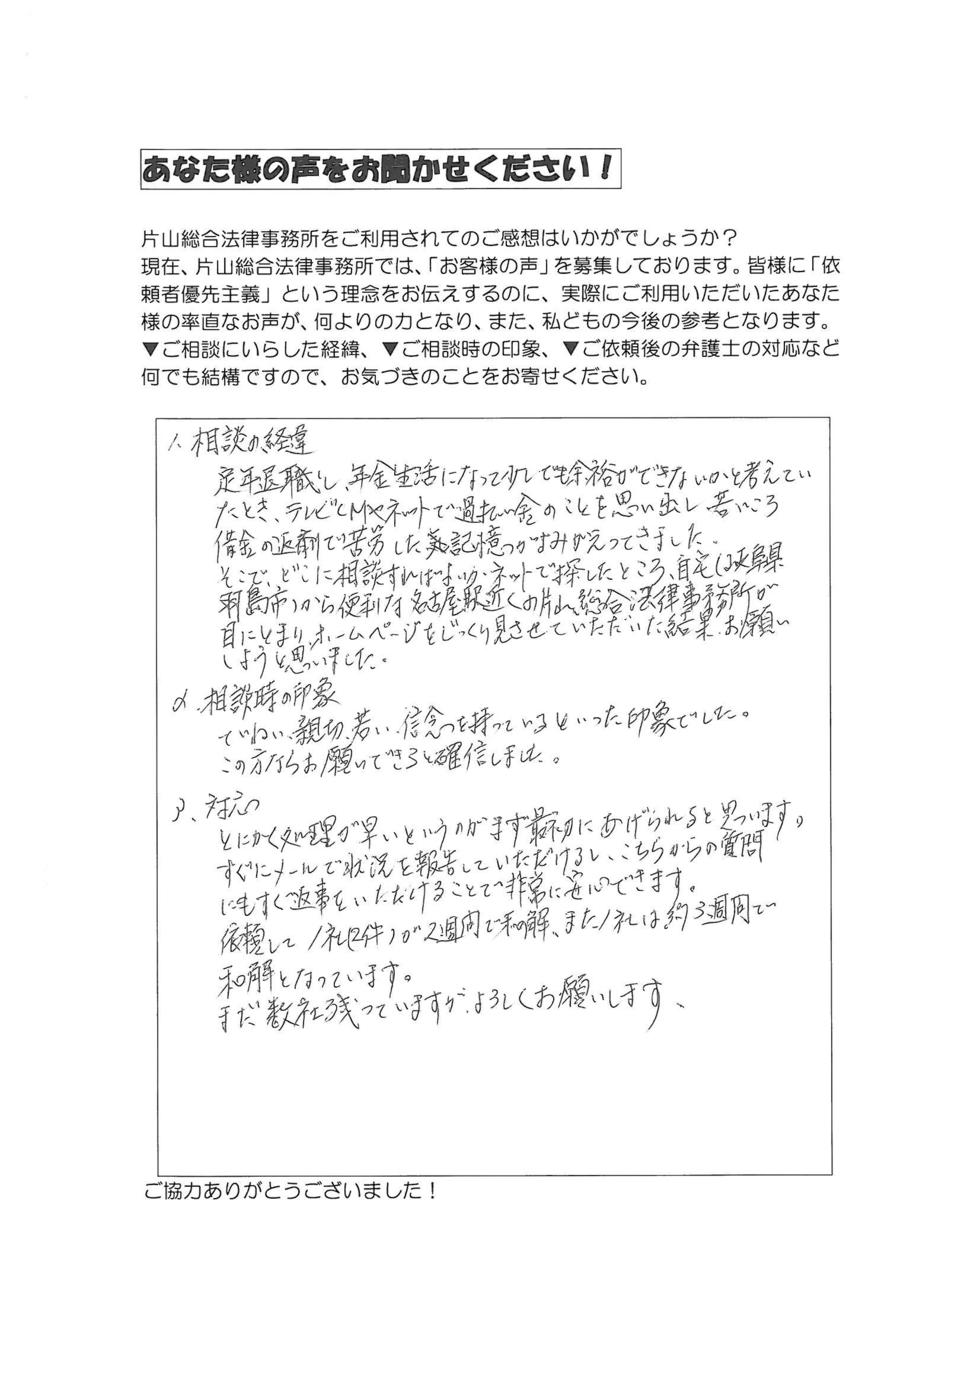 あなた様の声をお聞かせください！
片山総合法律事務所をご利用されてのご感想はいかがでしょうか？
現在、片山総合法律事務所では、「お客様の声」を募集しております。皆様に「依
頼者優先主義」という理念をお伝えするのに、実際にご利用いただいたあなた
様の率直なお声が、何よりの力となり、また、私どもの今後の参考となります。
▼ご相談にいらした経緯、▼ご相談時の印象、▼ご依頼後の弁護士の対応など
何でも結構ですので、お気づきのことをお寄せください。
1. 相談の経緯
定年退職し、年金生活になって少しでも余裕ができないかと考えてい
たとき、テレビCMやネットで過払い金のことを思い出し若いころ
借金の返済で苦労した記憶がよみがえってきました。
そこで、どこに相談すればよいかネットで探したところ、自宅(岐阜県
羽島市)から便利な名古屋駅近くの片山総合法律事務所が
目にとまり、ホームページをじっくり見させていただいた結果、お願い
しようと思いました。
2. 相談時の印象
ていねい、親切、若い、信念を持っているといった印象でした。
この方ならお願いできると確信しました。
3. 対応
とにかく処理が早いというのがまず最初にあげられると思います。
すぐにメールで状況を報告していただけるし、こちらからの質問
にもすぐ返事をいただけることで非常に安心できます。
依頼して1社(2件)が2週間で和解、また1社は約3週間で
和解となっています。
まだ数社残っていますが、よろしくお願いします、
ご協力ありがとうございました！